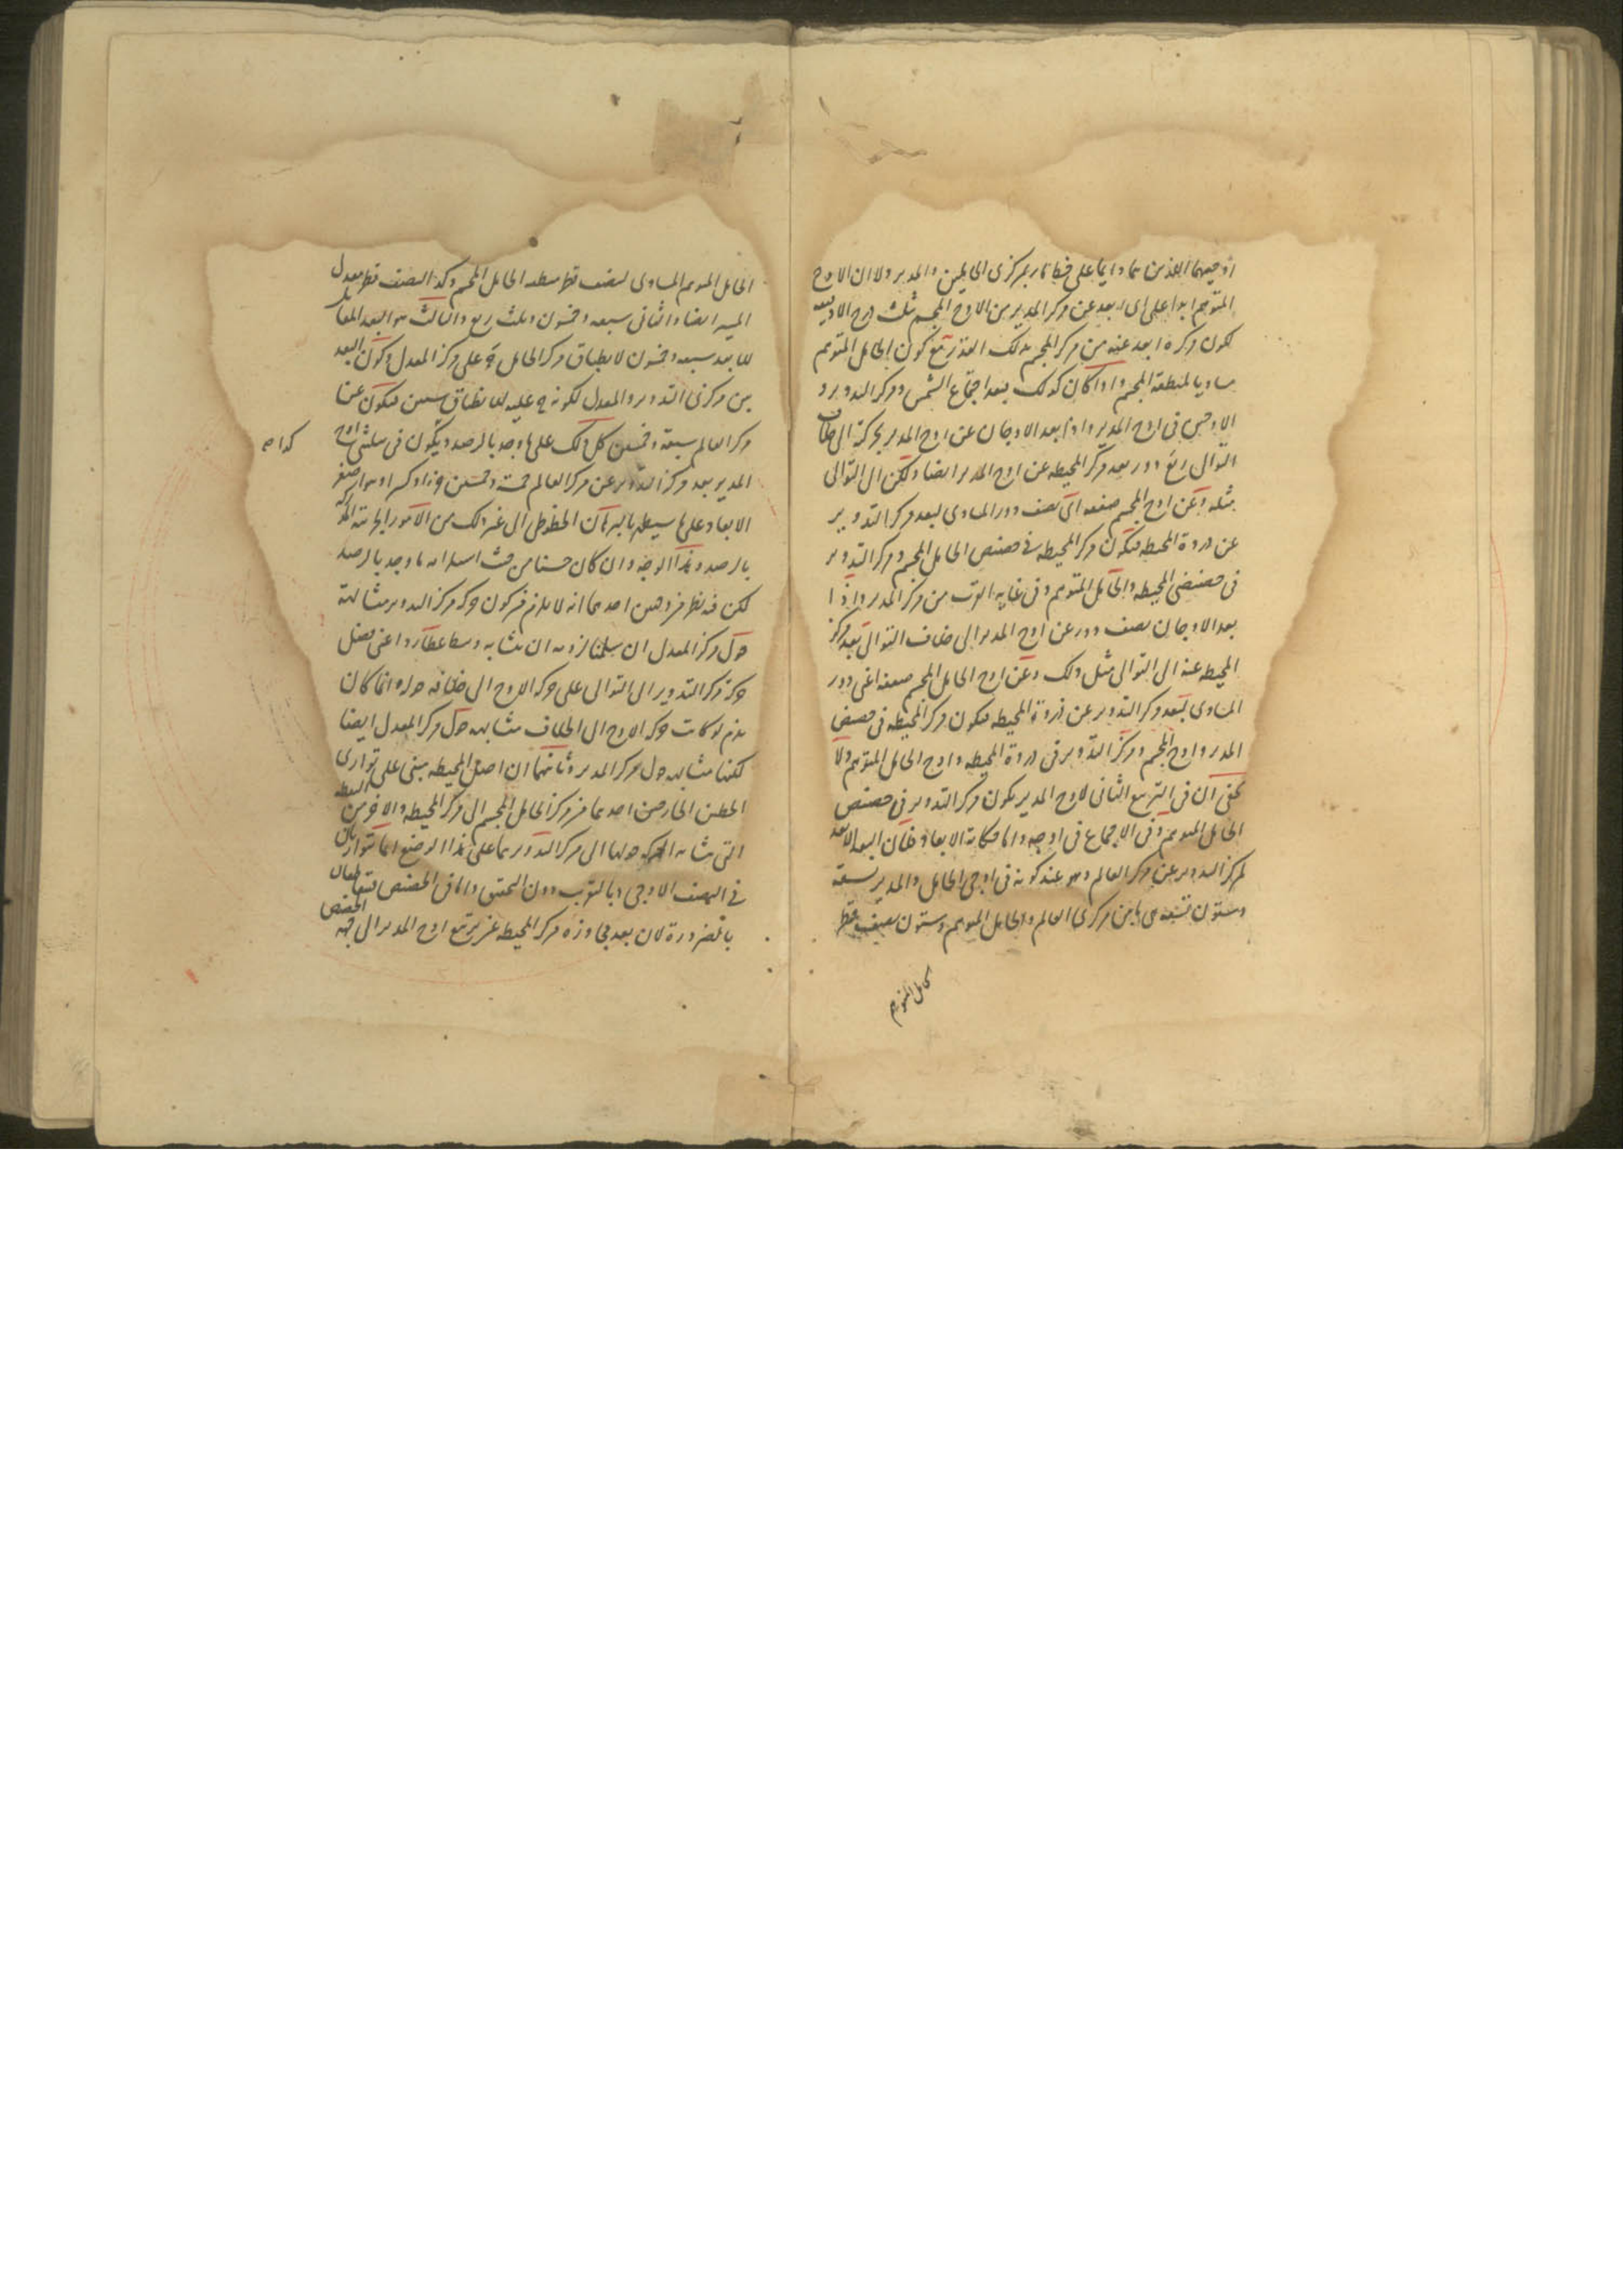 اوجيهما اللذين هما دايما على خط مار بمركزى الحاملين والمدير ولان الاوج
المتوهم ابدا على اى ابعد عن مركز المدير من الاوج المجسم تلك درج الاربعة
لكون مركزه ابعد عنه من مركز المجسم بذلك القدر مع كون الحامل المتوهم
مساويا لمنطقة المجسم واذا كان كذلك فبعد اجتماع الشمس ومركز التدوير و
الاوجين فى اوج المدير واذا بعد الاوجان عن اوج المدير بحركته الى خلاف
التوالى ربع دور بعد مركز المحيطه عن اوج المدير ايضا ولكن الى التوالى
مثله وعن اوج المجسم ضعفه اى نصف دور المساوى لبعد مركز التدوير
عن ذروة المحيطه فيكون مركز المحيطه فى حضيض الحامل المجسم ومركز التدوير
فى حضيضى المحيطه والحامل المتوهم وفى غاية القرب من مركز المدير واذا
بعد الاوجان نصف دور عن اوج المدير الى خلاف التوالى بعد مركز
المحيطه عنه الى التوالى مثل ذلك وعن اوج الحامل المجسم ضعفه اعنى دور
المساوى لبعد مركز التدوير عن ذروة المحيطه فيكون مركز المحيطه فى حضيض
المدير واوج المجسم ومركز التدوير فى ذروة المحيطه واوج الحامل المتوهم ولا
يخفى ان فى التربيع الثانى لاوج المدير يكون مركز التدوير فى حضيض
الحامل المتوهم وفى الاجتماع فى اوجه واما حكاية الابعاد فلان البعد الابعد
لمركز التدوير عن مركز العالم وهو عند كونه فى اوجى الحامل والمدير تسعة
وستون تسعه هى ما بين مركزى العالم والحامل المتوهم وستون نصف قطر
الحامل المتوهم
الحامل المتوهم المساوى لنصف قطر منطقه الحامل المجسم وكذا لنصف قطر معدل
المسير ايضا والثانى سبعه وخمسون وثلث ربع والثالث هو البعد المقابل
للابعد سبعه وخمسون لانطباق مركز الحامل ح على مركز المعدل وكون البعد
بين مركزى التدوير والمعدل لكونه ح عليه للانطباق ستين فيكون عن
مركز العالم سبعة وخمسين كل ذلك على ما وجد بالرصد ويكون فى تثليثى اوج
المدير بعد مركز التدوير عن مركز العالم خمسة وخمسين وزاد كسرا وهو اصغر
الابعاد على ما سيعلم بالبرهان الخطوطى الى غير ذلك من الامور الجزئية المدركة
بالرصد وهذا الوجه وان كان حسنا من حيث استلزامه ما وجد بالرصد
لكن فيه نظر من وجهين احدهما انه لا يلزم من كون حركة مركز التدوير متشابهة
حول مركز المعدل ان سلمنا لزومه ان يتشابه وسط عطارد اعنى فضل
حركة مركز التدوير الى التوالى على حركة الاوج الى خلافه حوله وانما كان
يلزم لو كانت حركة الاوج الى الخلاف متشابهه حول مركز المعدل ايضا
لكنها متشابهه حول مركز المدير وثانيهما ان اصل المحيطه يبتنى على توازى
الخطين الخارجين احدهما من مركز الحامل المجسم الى مركز المحيطه والاخر من النقطه
التى تشابه الحركه حولها الى مركز التدوير وهما على هذا الوضع انما يتوازيان
فى النصف الاوجى وبالتقريب دون التحقيق واما فى الحضيض فيتقاطعان
بالضرورة لان بعد مجاوزة مركز المحيطه عن تربيع اوج المدير الى جهه الحضيض